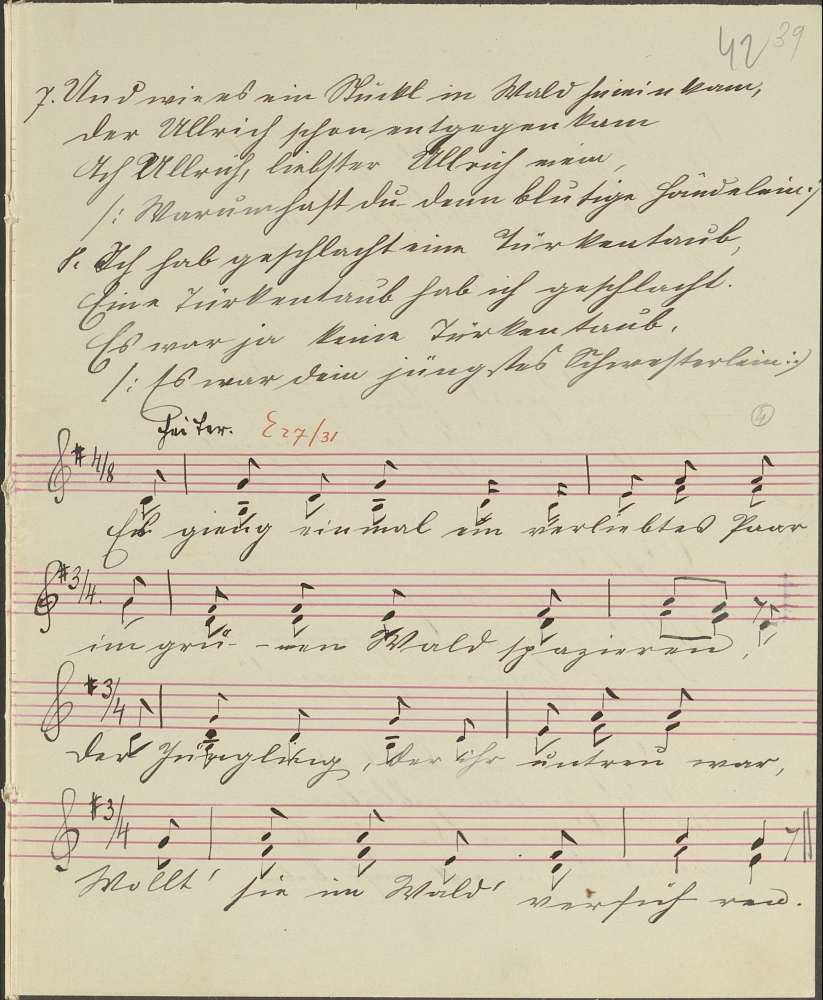 42 39
7. Und wie es ein Stückl in Wald hinein kam,
der Ullrich schon entgegen kam
Ach Ullrich, liebster Ullrich mein,
/: Warum hast du denn blutige Händelein :/
8. Ich hab geschlacht eine Türkentaub,
Eine Türkentaub hab ich geschlacht.
Es war ja keine Türkentaub,
/: Es war dein jüngstes Schwesterlein :/
4
Heiter. E 27/31
4/8
Es gieng einmal ein verliebtes Paar
3/4.
im grü- -nen Wald spazieren,
3/4
Der Jüngling, der ihr untreu war,
3/4
Wollt' sie im Wald'